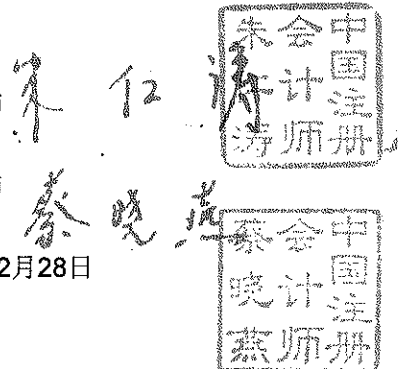 朱仁涛
中国注册
会计师
朱仁涛
蔡晓燕
2月28日
中国注册
会计师
蔡晓燕